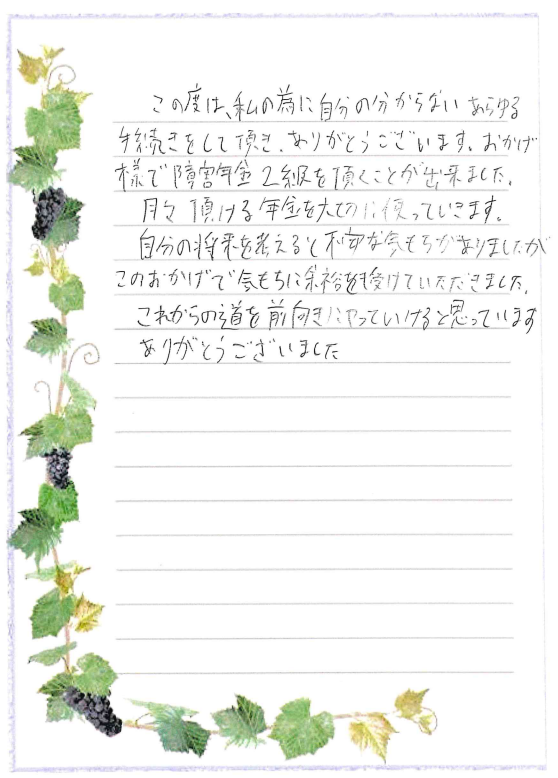 この度は、私の為に自分の分からない あらゆる
手続きをして頂き、ありがとうございます。おかげ
様で障害年金2級を頂くことが出来ました。
月々頂ける年金を大切に使っていきます。
自分の将来を考えると不安な気もちがありましたが
このおかげで気もちに余裕を受けていただきました。
これからの道を前向きにやっていけると思っています
ありがとうございました